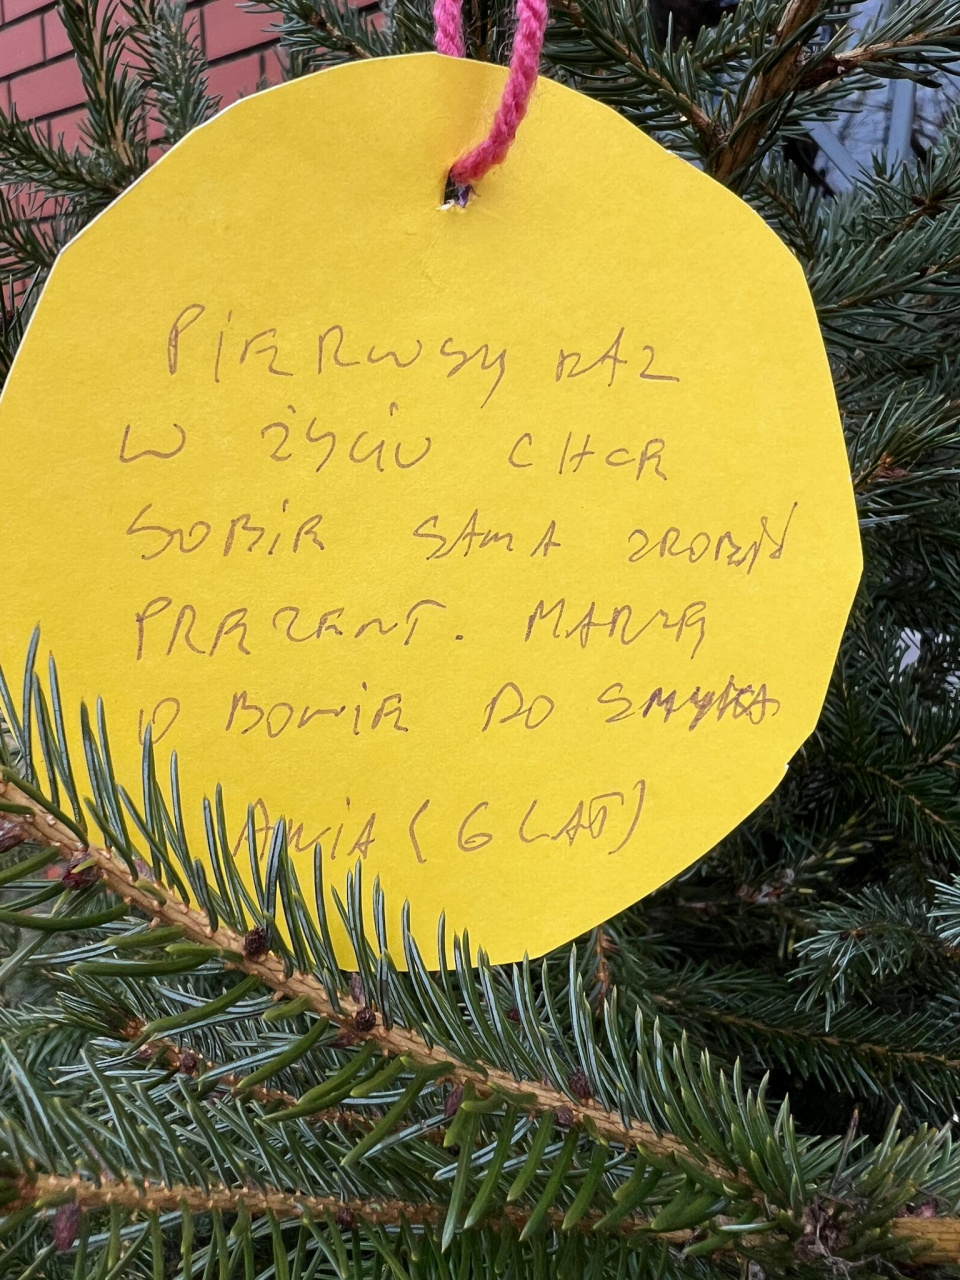 PIERWSY RAZ
W ŻYCIU CHCE
SOBIE SAMA ZROBIĆ
PREZENT. MARZE
O BONIE DO SMYKA
ANIA (6 LAT)